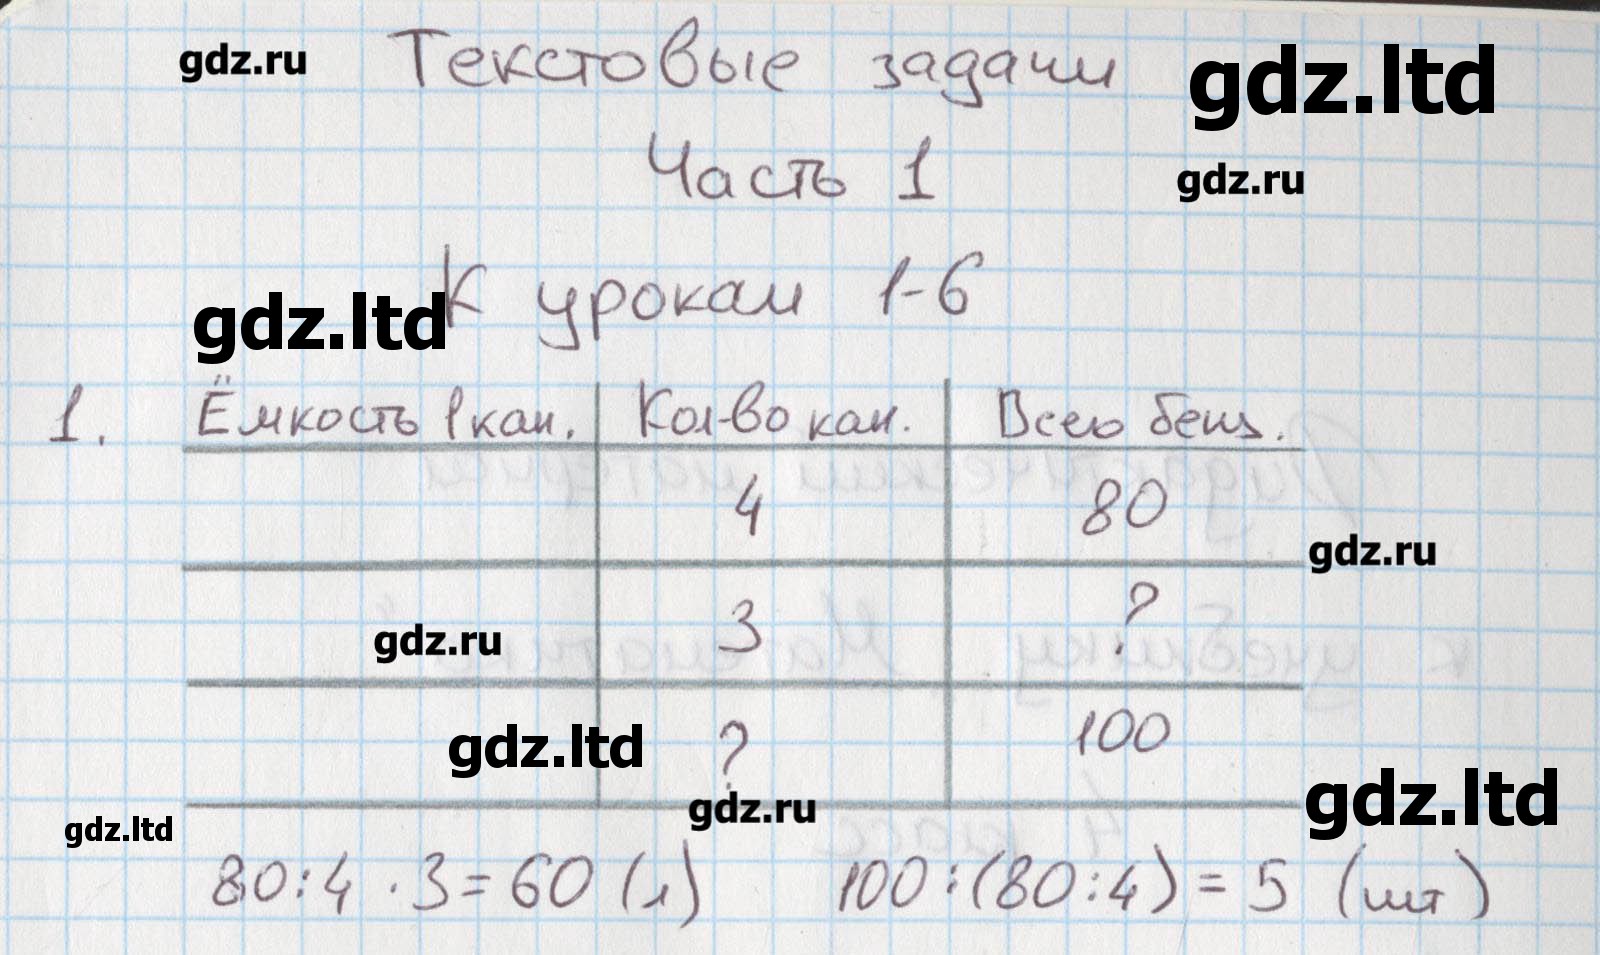 gdz.ru Текстовые задачи gdz.ltd
Часть 1 gdz.ru
gdz.ltd К урокам 1-6
1. Ёмкость 1 кан. Кол-во кан. Всего бенз.
4 80
gdz.ru
3 ?
gdz.ru
gdz.ltd ? 100
gdz.ru gdz.ltd
gdz.ltd
80:4 · 3 = 60 (л) 100:(80:4) = 5 (шт)